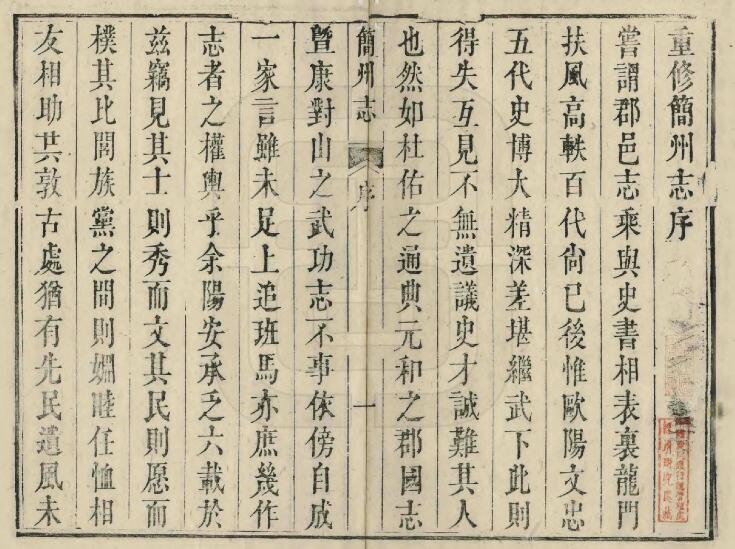 重修簡州志序
嘗謂郡邑志乘與史書相表裏龍門
扶風高軼百代尙已後惟歐陽文忠
五代史博大精深差堪繼武下此則
得失互見不無遺議史才誠難其人
也然如杜佑之通典元和之郡國志
簡州志 序 一
曁康對山之武功志不事依傍自成
一家言雖未足上追班馬亦庶幾作
志者之權輿乎余陽安承乏六載於
兹竊見其士則秀而文其民則愿而
樸其比閭族黨之間則婣睦任恤相
友相助其敦古處猶有先民遺風未